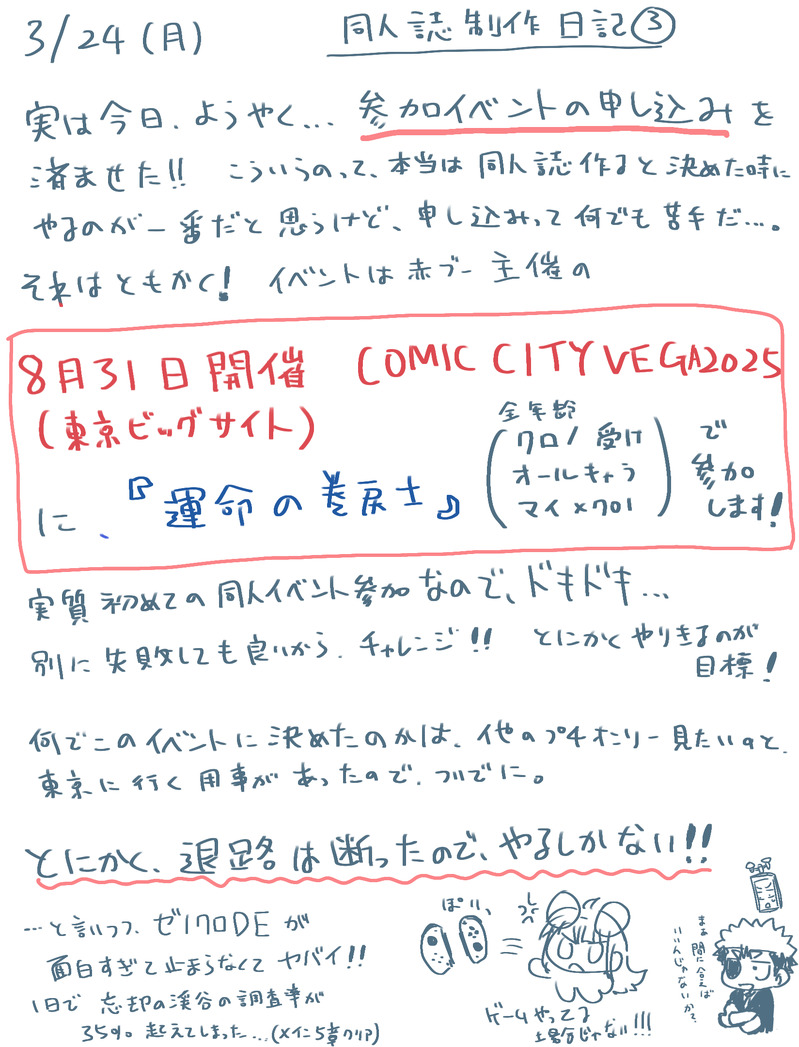 3/24(月)
同人誌制作日記③
実は今日、ようやく…参加イベントの申し込みを
済ませた!! こういうのって、本当は同人誌作ると決めた時に
やるのが一番だと思うけど、申し込みって何でも苦手だ…。
それはともかく! イベントは赤ブー主催の
8月31日開催 COMIC CITY VEGA2025
(東京ビッグサイト)
に、『運命の巻戻士』
全年齢
クロノ受け
オールキャラ
マイ×クロノ
で
参加
します!
実質初めての同人イベント参加なので、ドキドキ…
別に失敗しても良いから、チャレンジ!! とにかくやりきるのが
目標!
何でこのイベントに決めたのかは、他のプチオンリー見たいのと、
東京に行く用事があったので、ついでに。
とにかく、退路は断ったので、やるしかない!!
…と言いつつ、ゼノクロDEが
面白すぎて止まらなくてヤバイ!!
1日で忘却の渓谷の調査率が
35%超えてしまった…(メイン5章クリア)
ぽいっ
ゲームやってる
場合じゃない!!!
まあ間に合えば
いいんじゃないか?